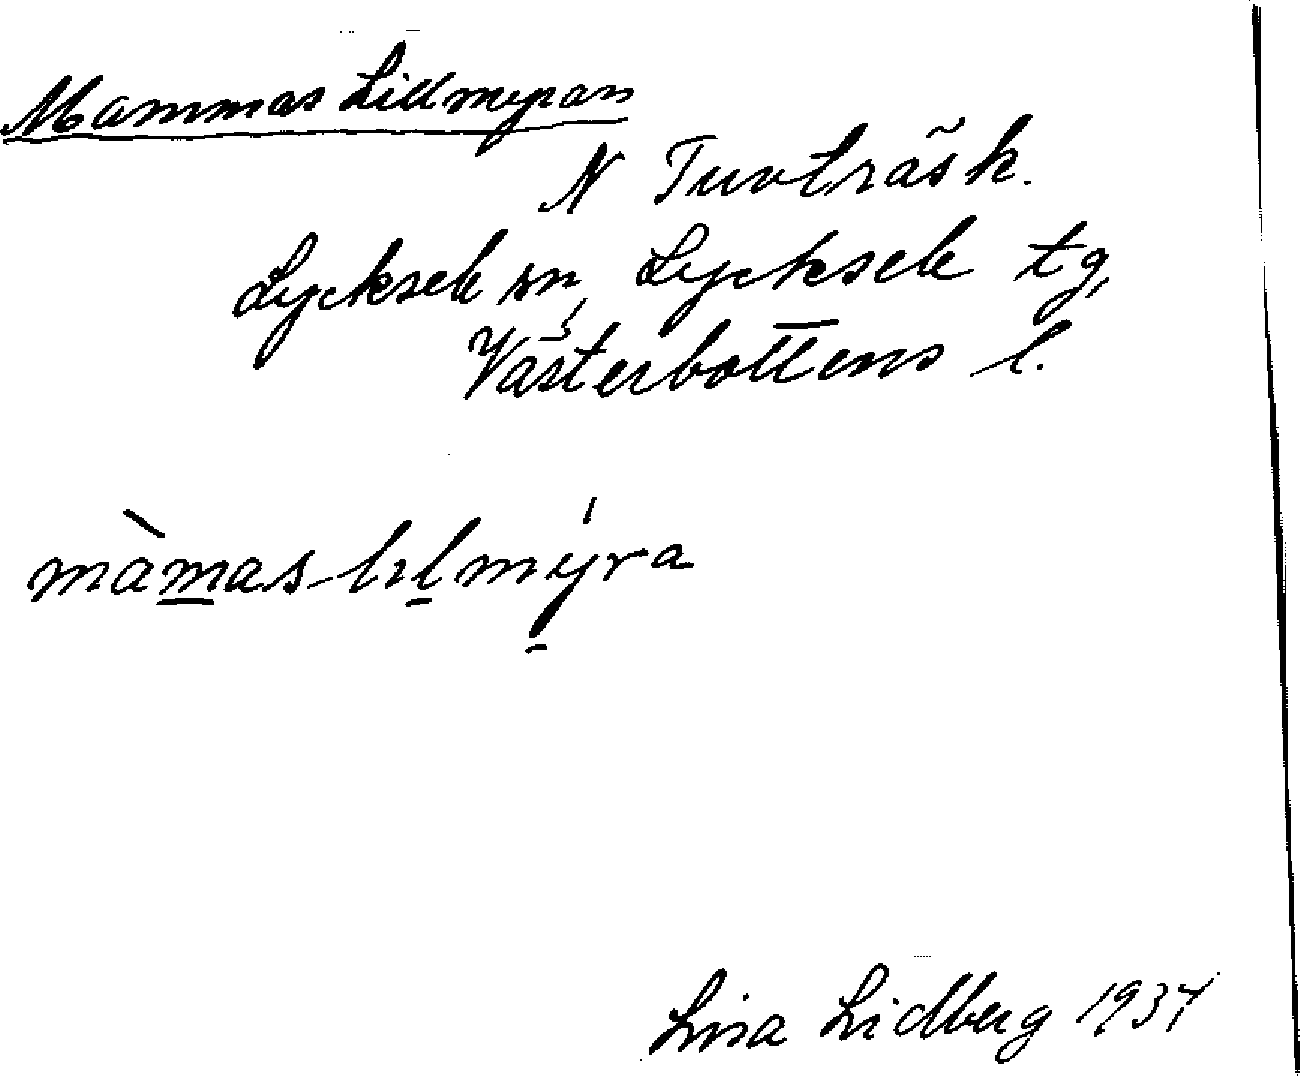 Mammas Lillmyran
N Tuvträsk.
Lycksele sn, Lycksele tg,
Västerbottens l.
màmas-lılmýra
Lisa Lidberg 1937